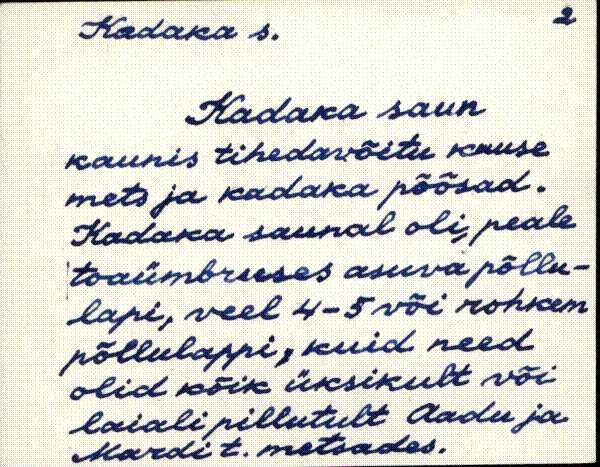 Kadaka s.
2
Kadaka saun
kaunis tihedavõitu kuuse
mets ja kadaka põõsad.
Kadaka saunal oli, peale
toaümbruses asuva põllu-
lapi, veel 4-5 või rohkem
põllulappi, kuid need
olid kõik üksikult või
laiali pillutult Aadu ja
Mardi t. metsades.